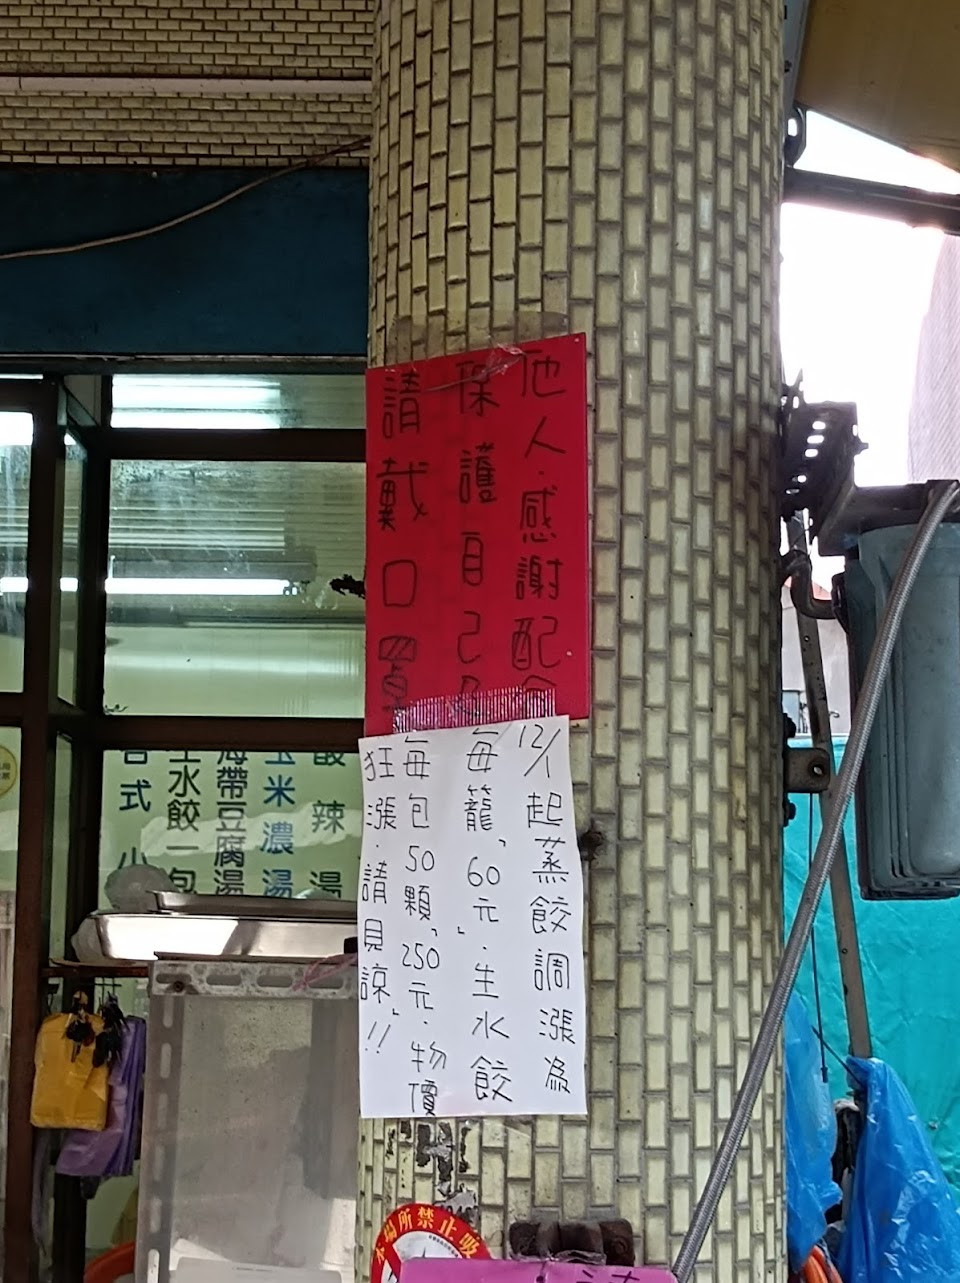 請戴口罩
保護自己及
他人.感謝配合
12/1起蒸餃調漲為
每籠、60元」.生水餃
每包50顆、250元.物價
狂漲.請見諒」!!
酸辣湯
玉米濃湯
海帶豆腐湯
生水餃一包
台式小
場所禁止吸
請